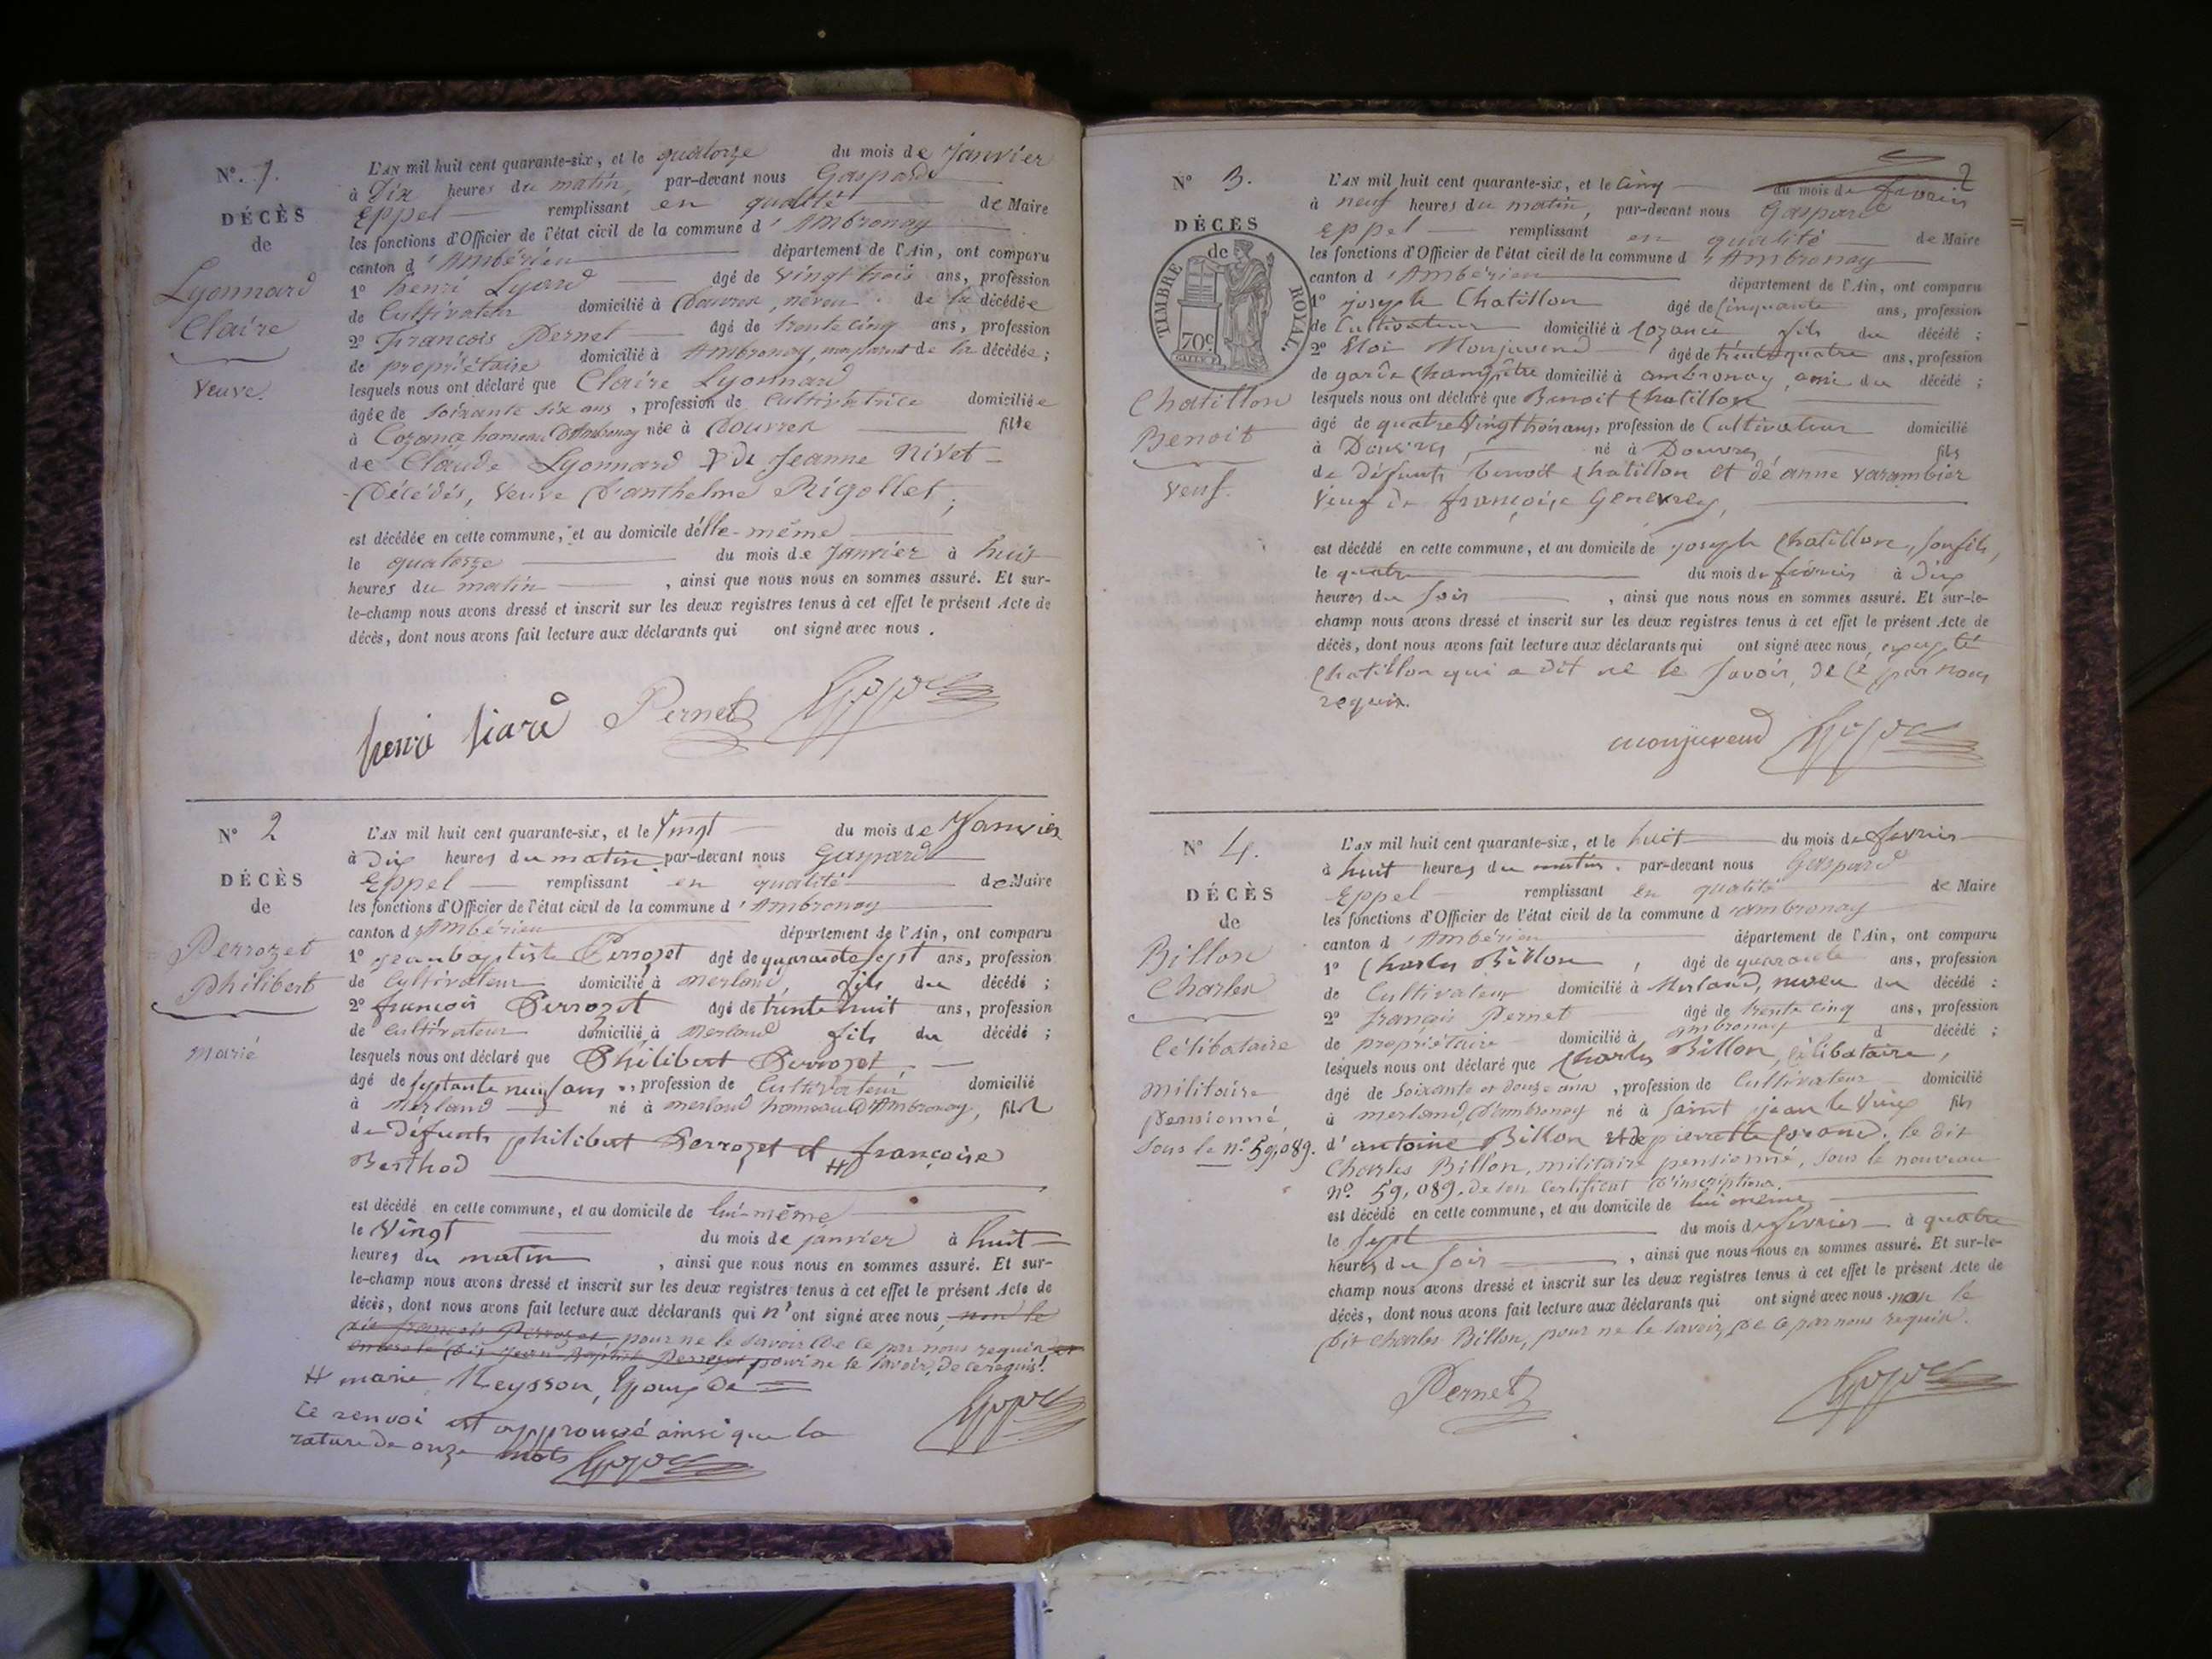 N°. 1.
DÉCÈS
de
Lyonnard
Claire
Veuve.
L'AN mil huit cent quarante-six, et le quatorze du mois de Janvier
à Dix heures du matin, par-devant nous Gaspard
Eppel remplissant en qualité de Maire
les fonctions d'Officier de l'état civil de la commune d'Ambronay
canton d'Ambérieu département de l'Ain, ont comparu
1° henri Lyard âgé de Vingt trois ans, profession
de Cultivateur domicilié à Douvres, neveu de la décédée
2° François Pernet âgé de trente cinq ans, profession
de propriétaire domicilié à Ambronay, non parent de la décédée ;
lesquels nous ont déclaré que Claire Lyonnard
âgée de soixante six ans, profession de Cultivatrice domiciliée
à Cozance hameau d'Ambronay née à Douvres fille
de Claude Lyonnard & de Jeanne Nivet
Décédés, Veuve d'anthelme Rigollet ;
est décédée en cette commune, et au domicile d'elle-même
le quatorze du mois de Janvier à huit
heures du matin, ainsi que nous nous en sommes assuré. Et sur-
le-champ nous avons dressé et inscrit sur les deux registres tenus à cet effet le présent Acte de
décès, dont nous avons fait lecture aux déclarants qui ont signé avec nous.
henri liard Pernet Eppel
N° 2
DÉCÈS
de
Perrozet
Philibert
marié
L'AN mil huit cent quarante-six, et le Vingt du mois de Janvier
à Dix heures du matin par-devant nous Gaspard
Eppel remplissant en qualité de Maire
les fonctions d'Officier de l'état civil de la commune d'Ambronay
canton d'Ambérieu département de l'Ain, ont comparu
1° Jean baptiste Perrozet âgé de quarante sept ans, profession
de Cultivateur domicilié à merland, fils du décédé ;
2° françois Perrozet âgé de trente huit ans, profession
de Cultivateur domicilié à Merland fils du décédé ;
lesquels nous ont déclaré que Philibert Perrozet
âgé de septante neuf ans, profession de Cultivateur domicilié
à Merland né à merland hameau d'Ambronay, fils
de défunts philibert Perrozet et françoise
Berthod #
est décédé en cette commune, et au domicile de lui-même
le Vingt du mois de janvier à huit
heures du matin, ainsi que nous nous en sommes assuré. Et sur-
le-champ nous avons dressé et inscrit sur les deux registres tenus à cet effet le présent Acte de
décès, dont nous avons fait lecture aux déclarants qui n'ont signé avec nous, non le
dit françois Perrozet, pour ne le savoir de ce par nous requis, et
dit Jean Baptiste Perrozet pour ne le savoir, de ce requis.
# marie Neysson, époux de =
Ce renvoi est approuvé ainsi que la
rature de onze mots Eppel
Eppel
2
N° 3.
DÉCÈS
de
TIMBRE ROYAL.
70c
Chatillon
Benoit
Veuf.
L'AN mil huit cent quarante-six, et le Cinq du mois de février
à neuf heures du matin, par-devant nous Gaspard
Eppel remplissant en qualité de Maire
les fonctions d'Officier de l'état civil de la commune d'Ambronay
canton d'Ambérieu département de l'Ain, ont comparu
1° joseph Chatillon âgé de Cinquante ans, profession
de Cultivateur domicilié à Cozance fils du décédé ;
2° Eloi Monjuvend âgé de trente quatre ans, profession
de garde Champêtre domicilié à ambronay, ami du décédé ;
lesquels nous ont déclaré que Benoit Chatillon
âgé de quatre Vingt trois ans, profession de Cultivateur domicilié
à Douvres, né à Douvres, fils
de Défunts benoit Chatillon et de anne Varambier
Veuf de françoise Genevrey,
est décédé en cette commune, et au domicile de joseph Chatillon, son fils,
le quatre du mois de février à Dix
heures du soir, ainsi que nous nous en sommes assuré. Et sur-le-
champ nous avons dressé et inscrit sur les deux registres tenus à cet effet le présent Acte de
décès, dont nous avons fait lecture aux déclarants qui ont signé avec nous, excepté
Chatillon qui a dit ne le savoir, de ce par nous
requis.
monjuvend Eppel
N° 4.
DÉCÈS
de
Billon
Charles
Célibataire
militaire
pensionné,
sous le n° 59,089.
L'AN mil huit cent quarante-six, et le huit du mois de février
à huit heures du matin, par-devant nous Gaspard
Eppel remplissant en qualité de Maire
les fonctions d'Officier de l'état civil de la commune d'ambronay
canton d'Ambérieu département de l'Ain, ont comparu
1° Charles Billon, âgé de quarante ans, profession
de Cultivateur domicilié à Merland, neveu du décédé ;
2° français Pernet âgé de trente cinq ans, profession
de propriétaire domicilié à ambronay d décédé ;
lesquels nous ont déclaré que Charles Billon, célibataire,
âgé de Soixante et douze ans, profession de Cultivateur domicilié
à merland, d'Ambronay né à Saint jean le Vieux fils
d'antoine Billon et de pierrette . le dit
Charles Billon, militaire pensionné, sous le nouveau
n° 59,089. de son Certificat d'inscription.
est décédé en cette commune, et au domicile de lui même
le sept du mois de février à quatre
heures du soir, ainsi que nous nous en sommes assuré. Et sur-le-
champ nous avons dressé et inscrit sur les deux registres tenus à cet effet le présent Acte de
décès, dont nous avons fait lecture aux déclarants qui ont signé avec nous. non le
Dit Charles Billon, pour ne le savoir, de ce par nous requis.
Pernet Eppel